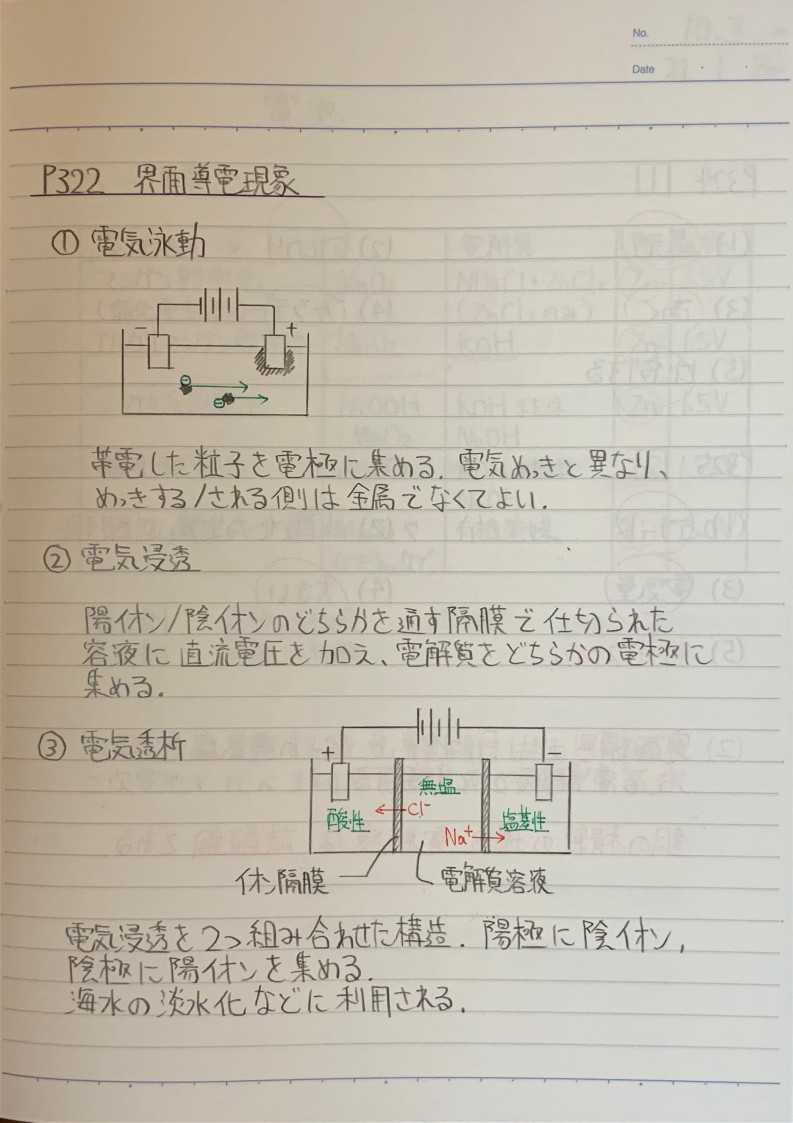 No.
Date
P322 界面導電現象
① 電気泳動
− +
⊖
⊖
帯電した粒子を電極に集める. 電気めっきと異なり、
めっきする/される側は金属でなくてよい.
② 電気浸透
陽イオン/陰イオンのどちらかを通す隔膜で仕切られた
容液に直流電圧を加え、電解質をどちらかの電極に
集める.
③ 電気透析
+ −
無塩
酸性 Cl⁻ 塩基性
Na⁺
イオン隔膜 電解質溶液
電気浸透を2つ組み合わせた構造. 陽極に陰イオン,
陰極に陽イオンを集める.
海水の淡水化などに利用される.